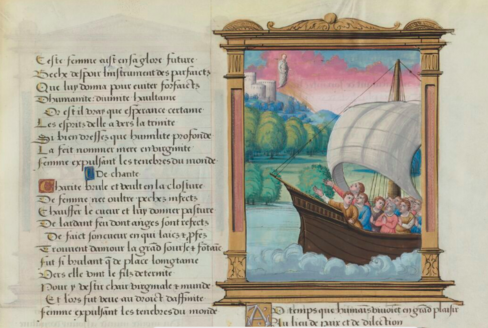 Ceste femme aist en sa glore future
Beche despoir linstrument des parfaicts
Que luy donna pour euiter forfaicts
Dhumanite diuinite haultaine
Or est il vray que esperance certaine
Les esprits delle a vers la trinite
Si bien dresses que humilite profonde
La feit nommer mere en virginite
Femme expulsant les tenebres du monde
De charite
Charite brule et veult en la closture
De femme nee oultre pechez infects
Chauffer le cueur et luy donner pasture
De lardant feu dont anges sont refects
De faict soncueur en qui laics &
trouuent damour la grad
fut si brulant de place longtaine
Vers elle vont le fils
Pour vestir chair virginale & munde
Et lors fut deue au droict daffinite
femme expulsant les tenebres du monde
AD temps que humais viuoiet en grad plaisir
Au lieu de paix et de dilection